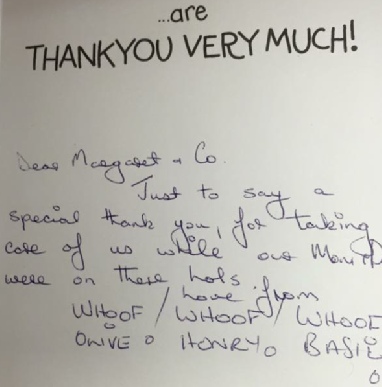 ...are
THANKYOU VERY MUCH!
Dear Margaret & Co.
Just to say a
special thank you, for taking
care of us while our Mam & D
were on there hols.
love from
WHOOF / WHOOF / WHOOF
OLIVE HENRY BASIL